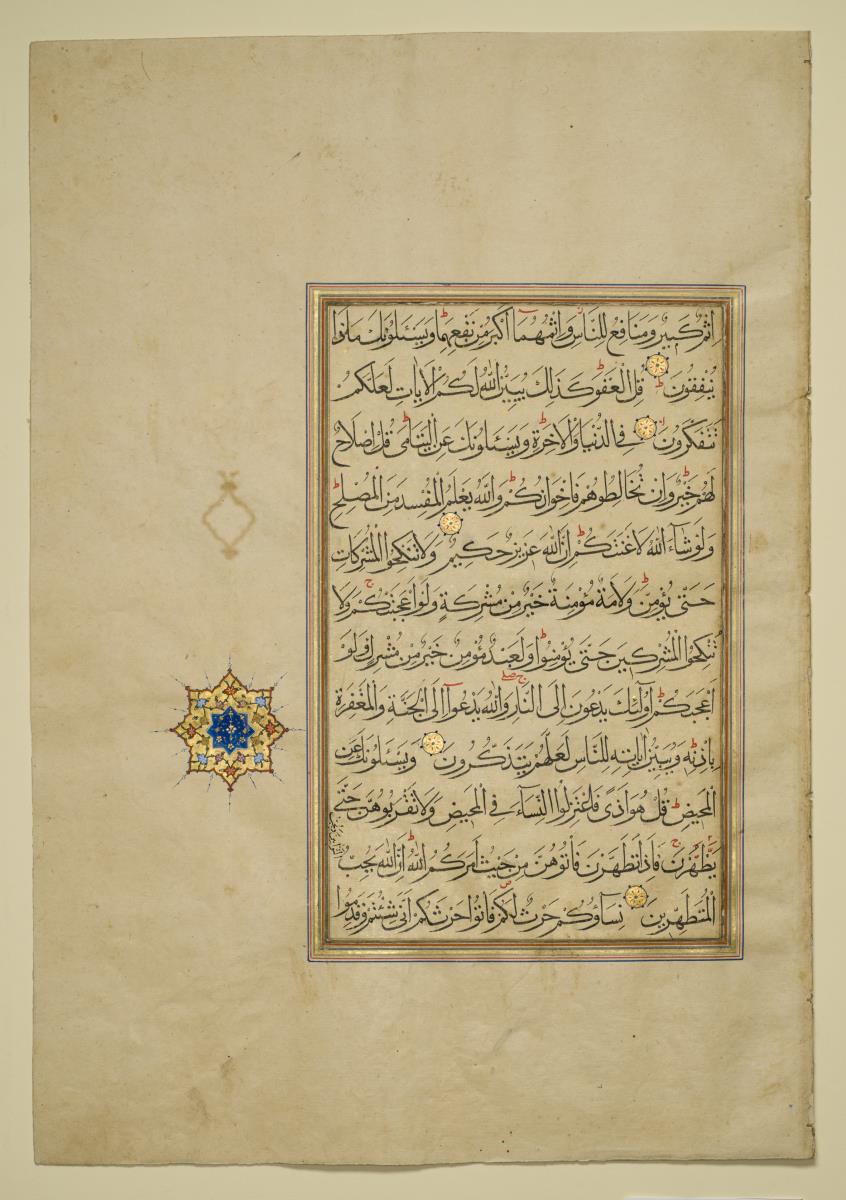 اِثْمٌ كَبِيرٌ وَمَنَافِعُ لِلنَّاسِ وَاِثْمُهُمَا اَكْبَرُ مِنْ نَفْعِهِمَا وَيَسْئَلُونَكَ مَاذَا
يُنْفِقُونَ قُلِ الْعَفْوَ كَذٰلِكَ يُبَيِّنُ اللّٰهُ لَكُمُ الْاٰيَاتِ لَعَلَّكُمْ
تَتَفَكَّرُونَ فِي الدُّنْيَا وَالْاٰخِرَةِ وَيَسْئَلُونَكَ عَنِ الْيَتَامٰى قُلْ اِصْلَاحٌ
لَهُمْ خَيْرٌ وَاِنْ تُخَالِطُوهُمْ فَاِخْوَانُكُمْ وَاللّٰهُ يَعْلَمُ الْمُفْسِدَ مِنَ الْمُصْلِحِ
وَلَوْ شَآءَ اللّٰهُ لَاَعْنَتَكُمْ اِنَّ اللّٰهَ عَزِيزٌ حَكِيمٌ وَلَا تَنْكِحُوا الْمُشْرِكَاتِ
حَتّٰى يُؤْمِنَّ وَلَاَمَةٌ مُؤْمِنَةٌ خَيْرٌ مِنْ مُشْرِكَةٍ وَلَوْ اَعْجَبَتْكُمْ وَلَا
تُنْكِحُوا الْمُشْرِكِينَ حَتّٰى يُؤْمِنُوا وَلَعَبْدٌ مُؤْمِنٌ خَيْرٌ مِنْ مُشْرِكٍ وَلَوْ
اَعْجَبَكُمْ اُولٰٓئِكَ يَدْعُونَ اِلَى النَّارِ وَاللّٰهُ يَدْعُوٓا اِلَى الْجَنَّةِ وَالْمَغْفِرَةِ
بِاِذْنِهِ وَيُبَيِّنُ اٰيَاتِهِ لِلنَّاسِ لَعَلَّهُمْ يَتَذَكَّرُونَ وَيَسْئَلُونَكَ عَنِ
الْمَحِيضِ قُلْ هُوَ اَذًى فَاعْتَزِلُوا النِّسَآءَ فِي الْمَحِيضِ وَلَا تَقْرَبُوهُنَّ حَتّٰى
يَطْهُرْنَ فَاِذَا تَطَهَّرْنَ فَاْتُوهُنَّ مِنْ حَيْثُ اَمَرَكُمُ اللّٰهُ اِنَّ اللّٰهَ يُحِبُّ
التَّوَّابِينَ وَيُحِبُّ
الْمُتَطَهِّرِينَ نِسَآؤُكُمْ حَرْثٌ لَكُمْ فَاْتُوا حَرْثَكُمْ اَنّٰى شِئْتُمْ وَقَدِّمُوا